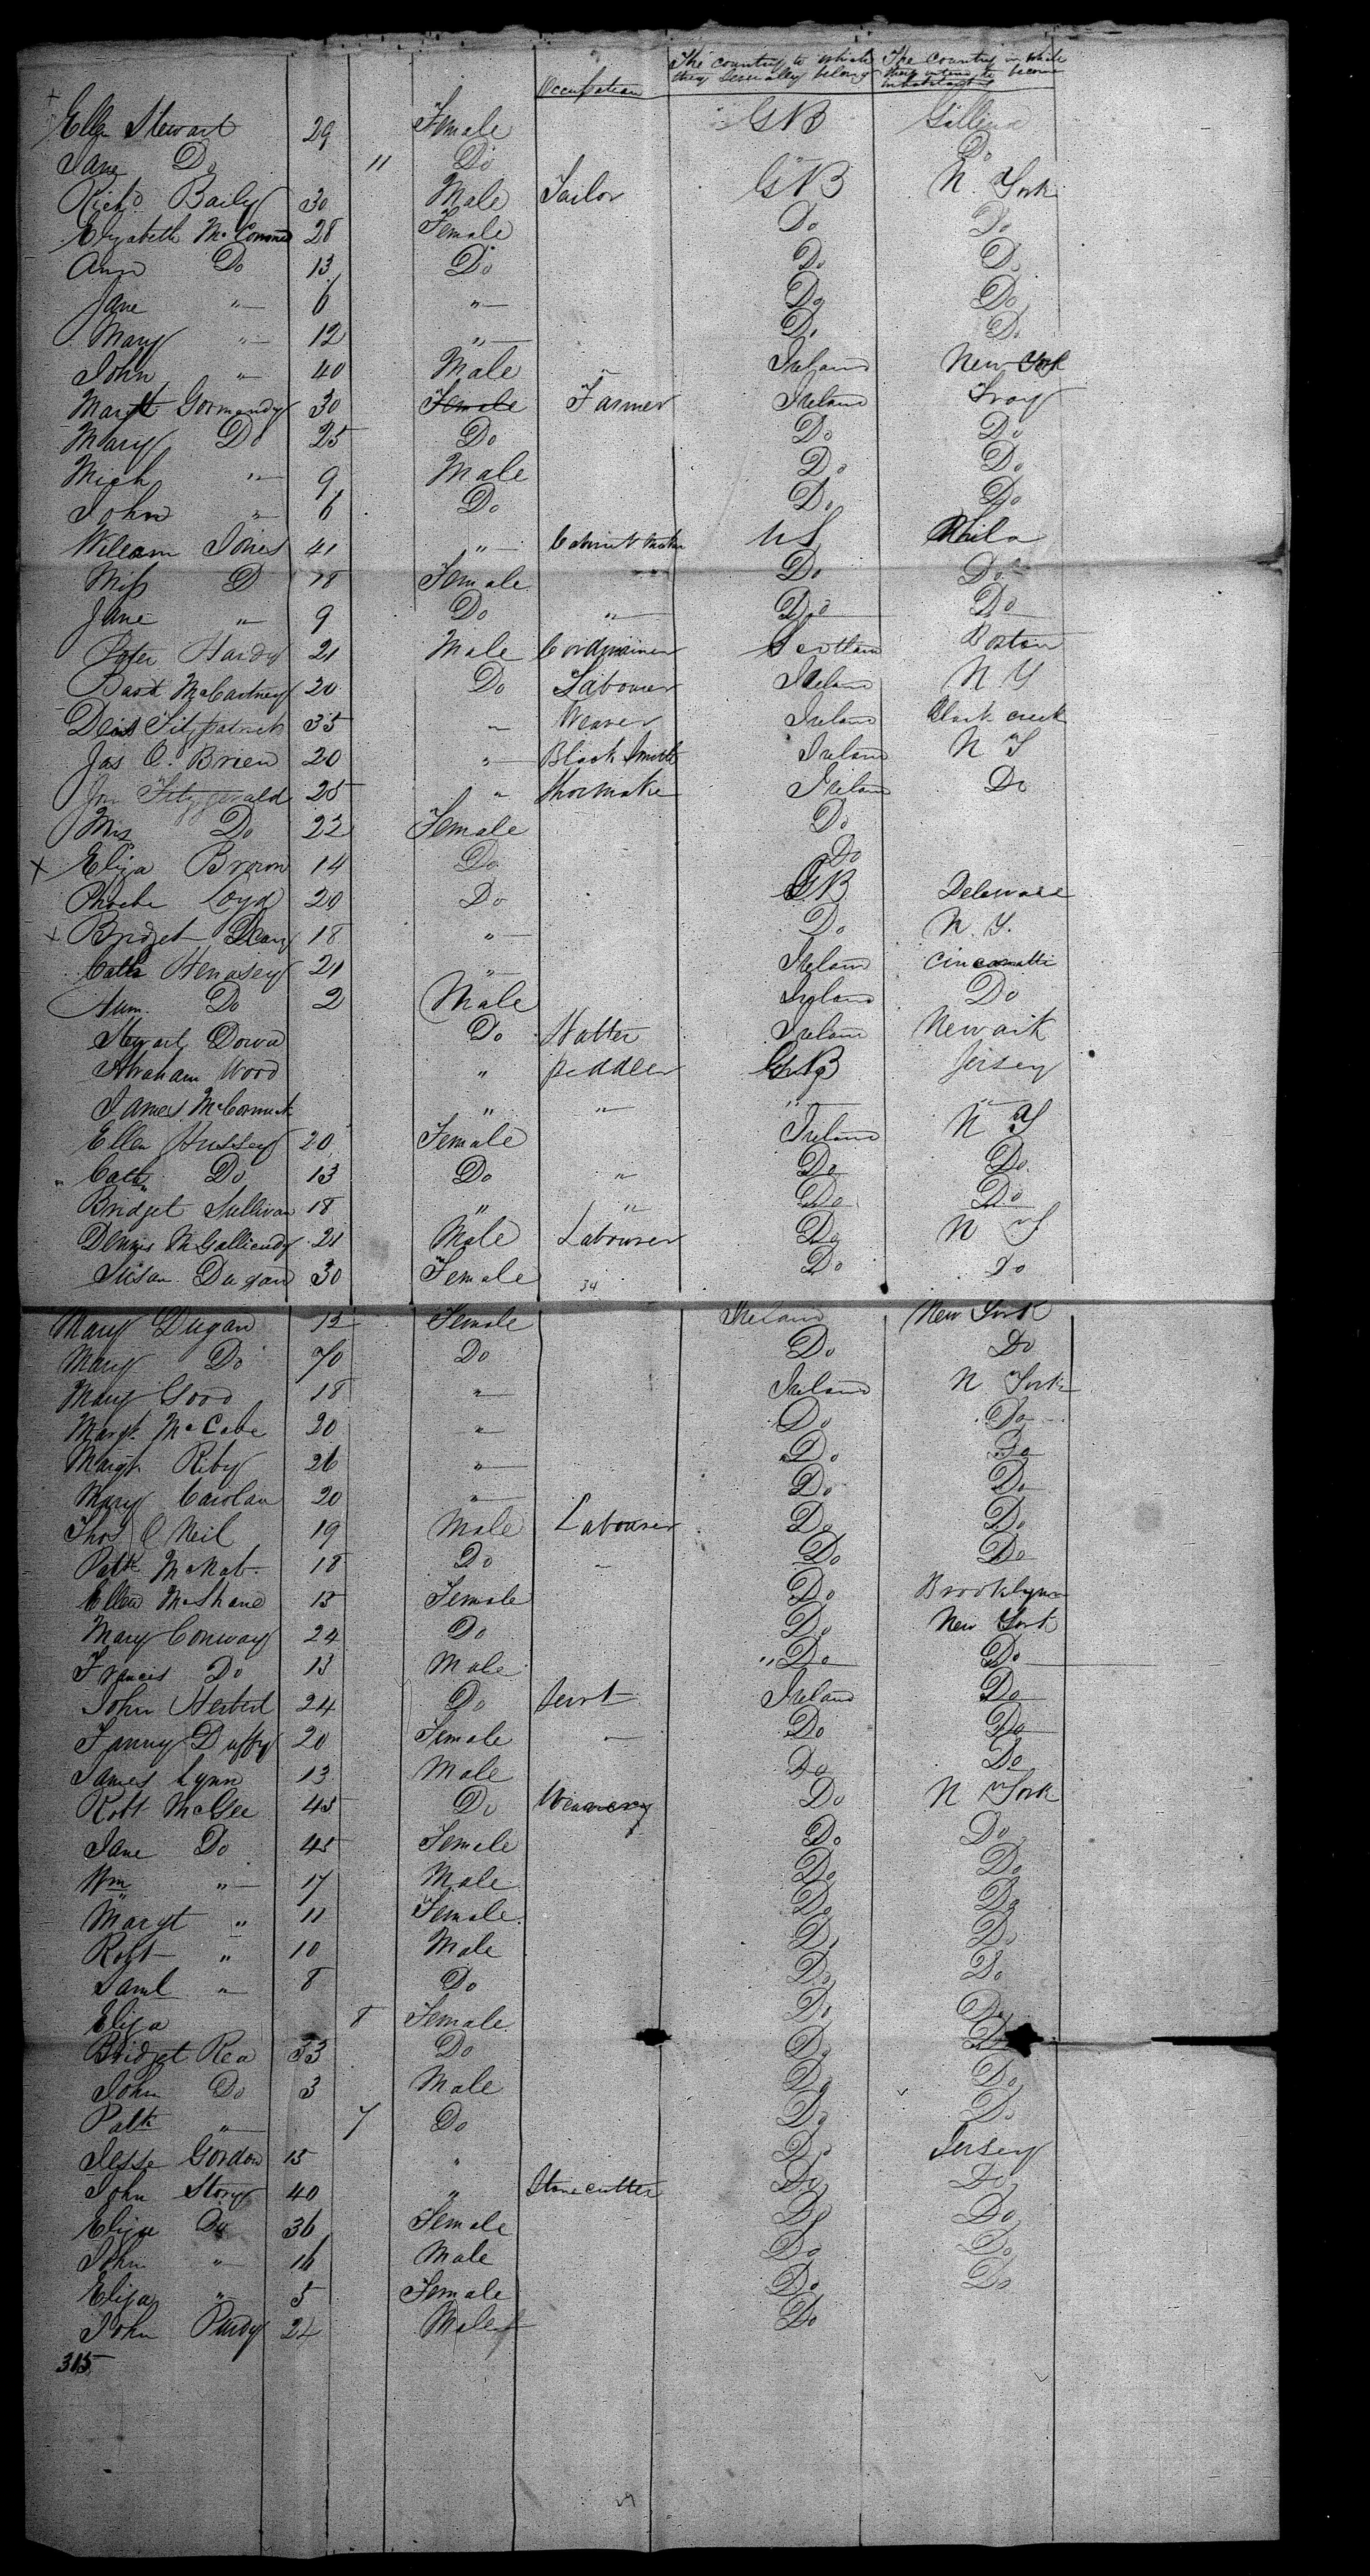 Occupation The country to which they severally belong The Country in which they intend to become inhabitants
Ellen Stewart 29 Female GB
Jane Do 11 Do Do
Richd Baily 30 Male Tailor GB N. York
Elizabeth McConnel 28 Female Do Do
Ann Do 13 Do Do Do
Jane " 6 " Do Do
Mary " 12 " Do Do
John " 40 Male " Ireland New York
Margt Gormandy 30 Female Farmer Ireland Troy
Mary Do 25 Do Do Do
Mich " 9 Male Do Do
John " 6 Do Do Do
William Jones 41 " Cabinet Maker US Phila
Miss D 18 Female Do Do
Jane " 9 Do " Do Do
Peter Hardy 21 Male Cordwainer Scotland Boston
Bart McCartney 20 Do Labourer Ireland N Y
Denis Fitzpatrick 35 " Weaver Ireland creek
Jas O. Brien 20 " Black Smith Ireland N Y
Jno Fitzgerald 25 " Shoemake Ireland Do
Mrs Do 22 Female Do
x Eliza Brown 14 Do Do
Phoebe Loyd 20 Do GB Delaware
x Bridget 18 " Do N. Y.
Cath Henasey 21 " Ireland Cincanatti
Do 2 Male Ireland Do
Stewart Do Hatter Ireland Newark
Abraham Wood " peddler GB Jersey
James McCormick " " " "
Ellen Hussey 20 Female Ireland N Y
Cath Do 13 Do " Do Do
Bridget Sullivan 18 " " Do Do
Dennis 21 Male Labourer Do N Y
Susan Dugan 30 Female 34 Do Do
Mary Dugan 12 Female Ireland New York
Mary Do 70 Do Do Do
Mary Good 18 " Ireland N York
Margt McCabe 20 " Do Do
Margt Riby 26 " Do Do
Mary Carolan 20 " Do Do
Thos O Neil 19 Male Labourer Do Do
Patk McNab 18 Do " Do Do
Ellen McShane 15 Female Do Brooklynn
Mary Conway 24 Do Do New York
Francis Do 13 Male " Do Do
John Herbert 24 Do Servt Ireland Do
Fanny Duffy 20 Female " Do Do
James Lynn 13 Male Do Do
Robt McGee 45 Do Do N York
Jane Do 45 Female Do Do
Wm " 17 Male Do Do
Margt " 11 Female Do Do
Robt " 10 Male Do Do
Saml " 8 Do Do Do
Eliza 8 Female Do Do
Bridget Rea 33 Do Do Do
John Do 3 Male Do Do
Patk " 7 Do Do Do
Jesse Gordon 15 " Do Jersey
John Story 40 " Stone cutter Do Do
Eliza Do 36 Female Do Do
John " 16 Male Do Do
Eliza " 5 Female Do Do
John Purdy 24 Male Do
315